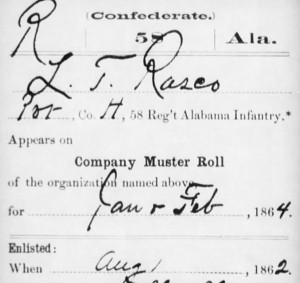 (Confederate.)
R 58 Ala.
L. T. Rasco
Pvt, Co. H, 58 Reg't Alabama Infantry.*
Appears on
Company Muster Roll
of the organization named above
for Jan & Feb, 1864.
Enlisted:
When Aug 1, 1862.